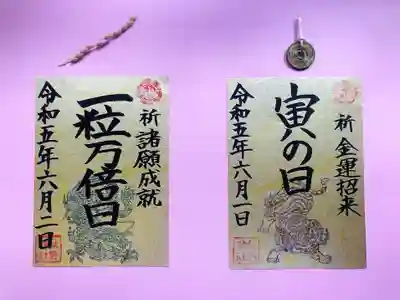 祈 諸願成就
一粒万倍日
令和五年六月二日
祈 金運招来
寅の日
令和五年六月一日